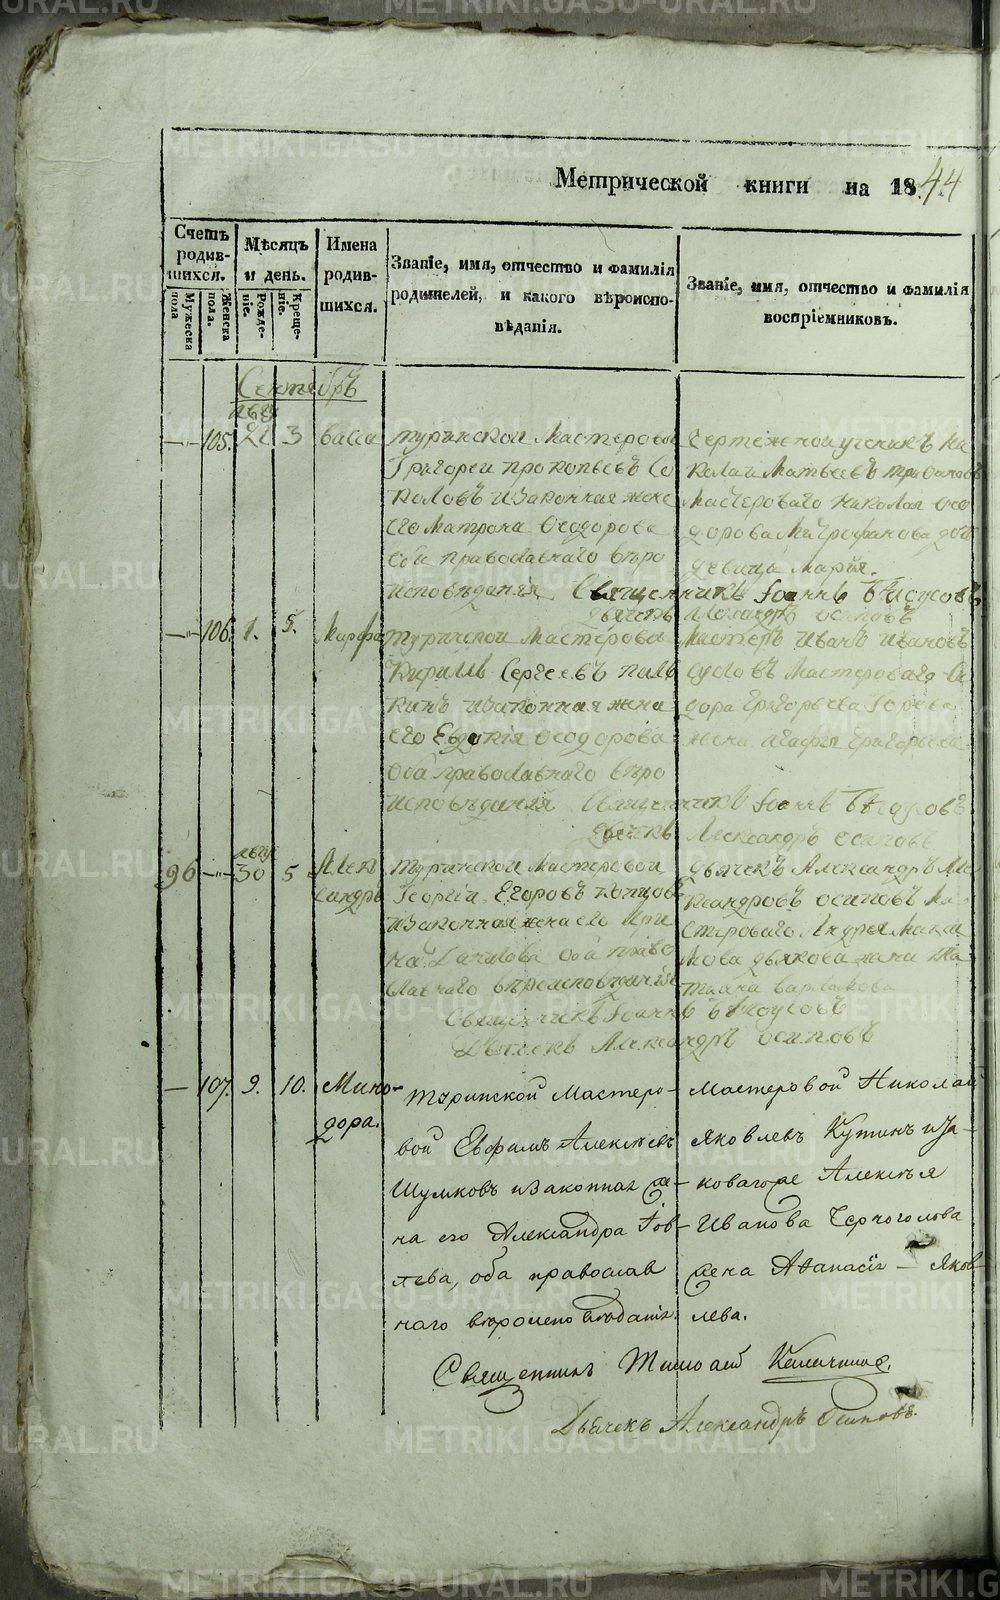 Метрической книги на 1844
Счетъ родив-шихся.
Мѣсяцъ и день.
Имена родив-шихся.
Званіе, имя, отчество и фамилія
родителей, и какого вѣроиспо-
вѣданія.
Званіе, имя, отчество и фамилія
воспріемниковъ.
Мужеска пола
Женска пола.
Рожде-ніе.
Креще-ніе.
Сентябрь
105. 3 Васса
Туринской Мастеровой
Григорей Прокопьевъ Со
коловъ изаконная жена
его Матрона Ѳеодорова
оба православнаго вѣро
исповѣданія
Чертежной ученикъ Ни
колай Матвеевъ
Мастероваго Николая Ѳео
дорова Митрофанова доч
девица Марія.
Священникъ Іоаннъ Бѣлоусовъ
Дьячекъ Александръ Осиповъ
106. 1. 5. Марфа
Туринской Мастерово
Кириллъ Сергеевъ
кинъ изаконная жена
его Евдокія Ѳеодорова
оба православнаго вѣро
исповѣданія
Мастеръ Иванъ Ивановъ
Сусловъ Мастероваго Си
дора Григорьева
жена Агафія Григорьева
Священникъ Іоаннъ Бѣлоусовъ
Дьячекъ Александръ Осиповъ
96 30 5 Алек
сандръ
Туринской Мастеровой
Георгій Егоровъ
изаконная жена его Ири
на Данилова оба право
славнаго вѣроисповѣданія
Дьячекъ Александръ Але
ксандровъ Осиповъ Ма
стероваго Андрея Макси
мова Дьякова жена Та
тіана
Священникъ Іоаннъ Бѣлоусовъ
Дьячекъ Александръ Осиповъ
107. 9. 10. Мино-
дора.
Туринской Мастеро-
вой Евфимъ Алексѣевъ
Шумковъ изаконная же-
на его Александра Іов-
лева, оба православ
наго вѣроисповѣданія.
Мастеровой Николай
Яковлевъ Кутинъ иза-
коваго же Алексѣя
Иванова Черноголова
жена Аѳанасія - Яков-
лева.
Священникъ Тимоѳей
Дьячекъ Александръ Осиповъ.
METRIKI.GASU-URAL.RU